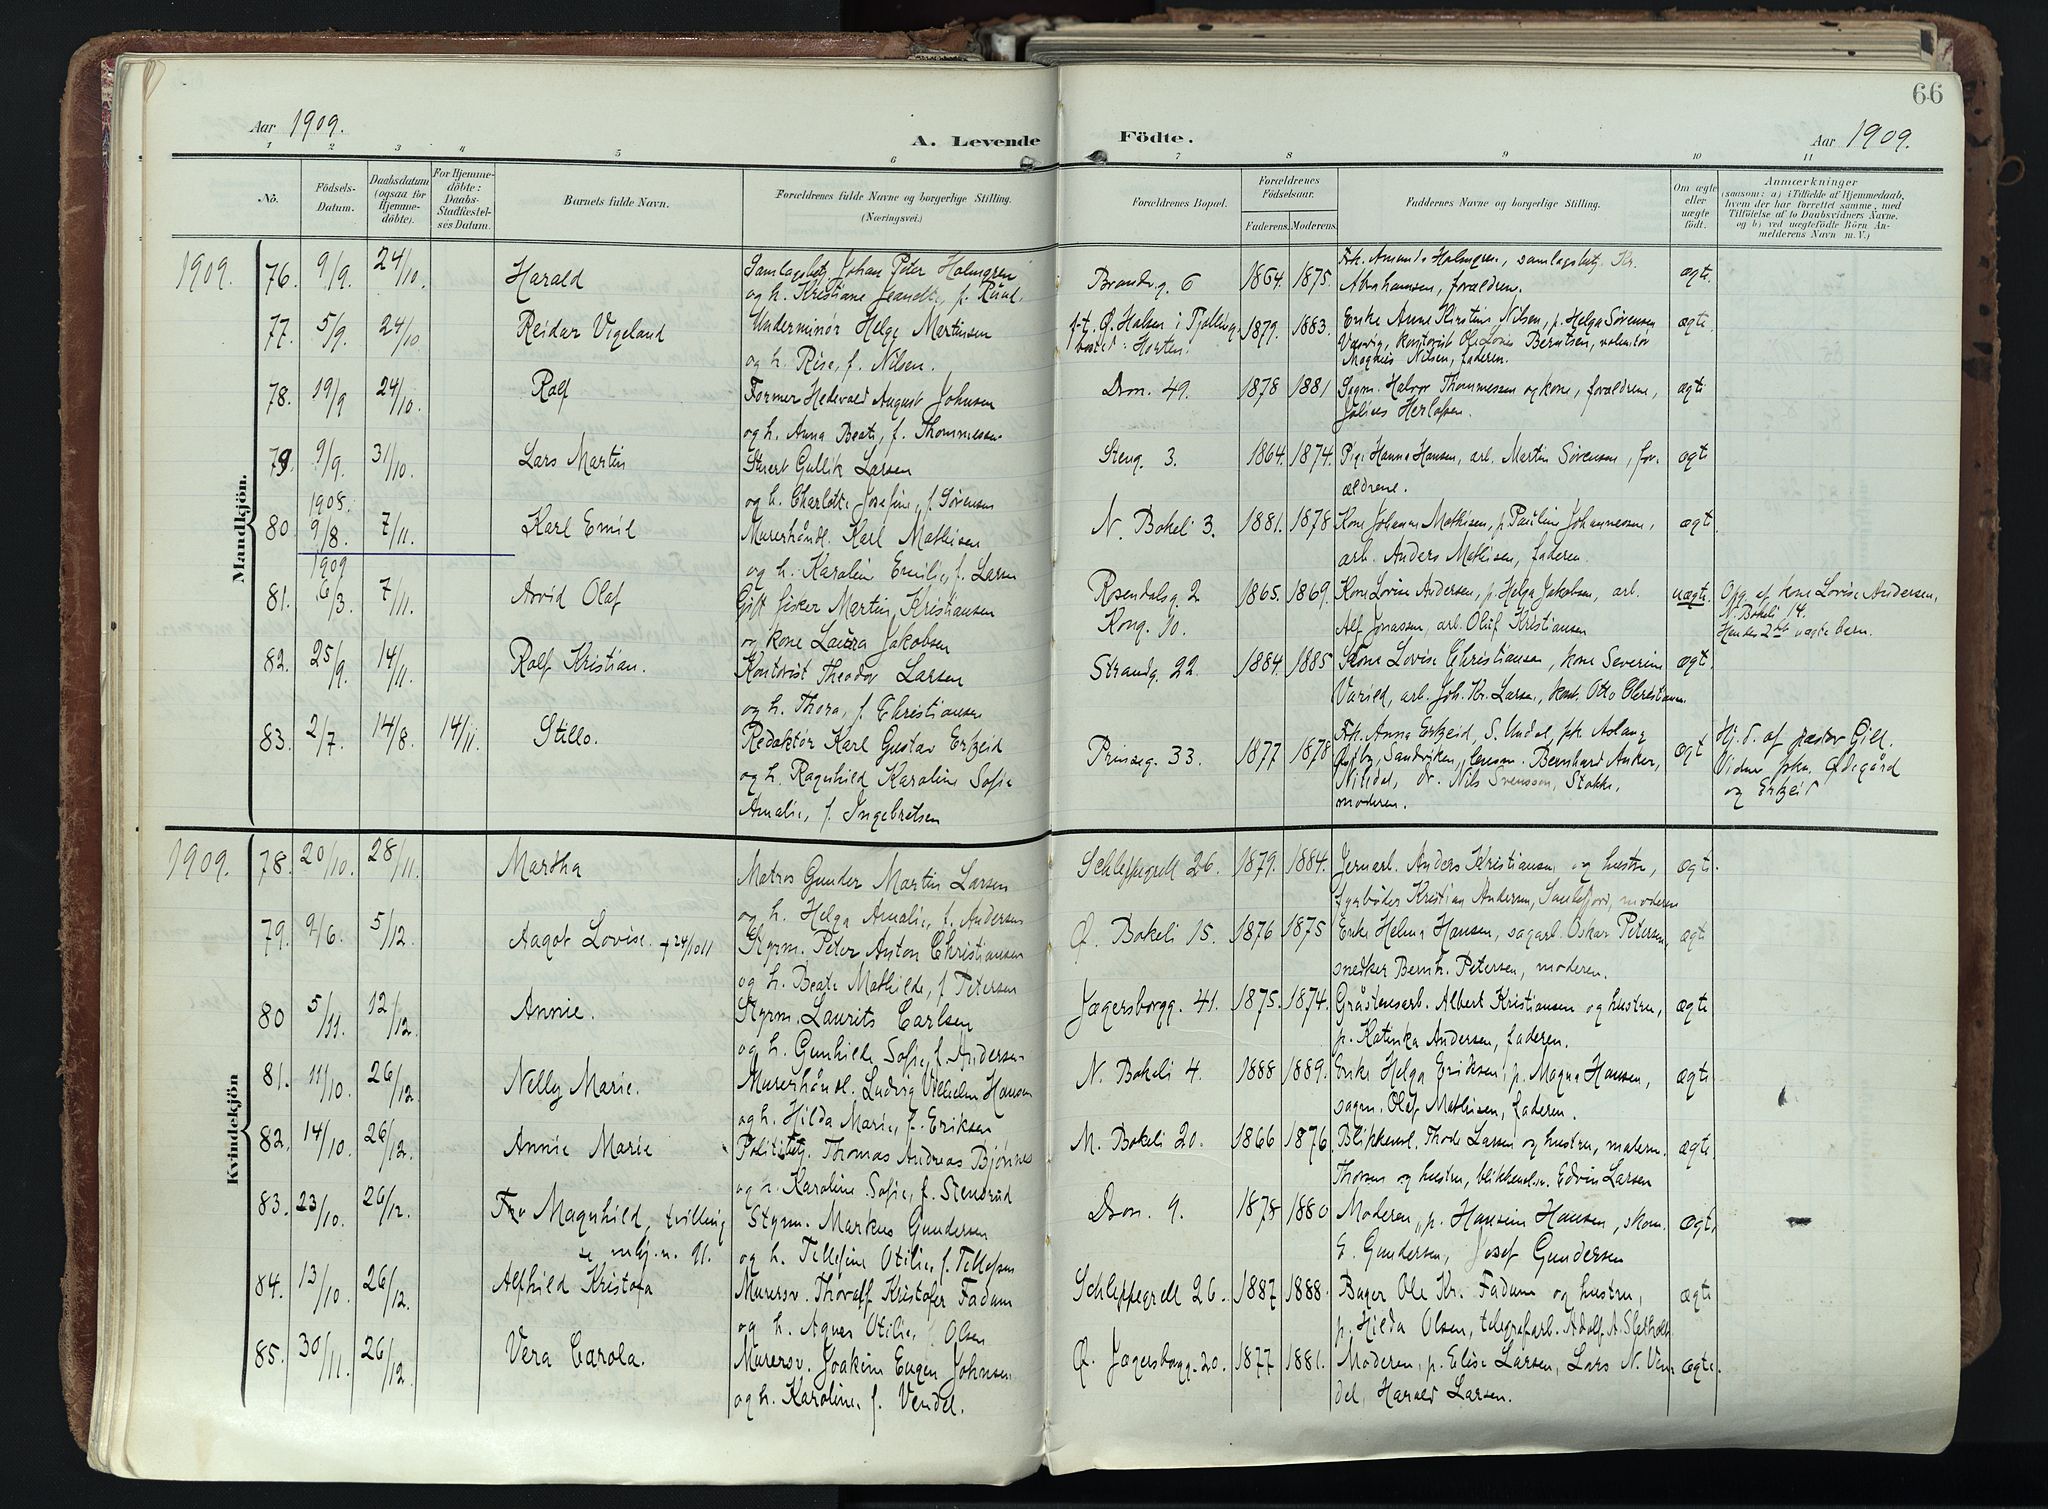 66
Aar 1909.
A. Levende Födte.
Aar 1909.
1 2 3 4 5 6 7 8 9 10 11
No.
Födsels-
Datum.
Daabsdatum
(ogsaa for
Hjemme-
döbte).
For Hjemme-
döbte:
Daabs-
Stadfæstel-
ses Datum.
Barnets fulde Navn.
Forældrenes fulde Navne og borgerlige Stilling.
(Næringsvei.)
Forældrenes Bopæl.
Forældrenes
Födselsaar.
Faderens. Moderens.
Faddernes Navne og borgerlige Stilling.
Om ægte
eller
uægte
födt.
Anmærkninger
(saasom: a) i Tilfælde af Hjemmedaab,
hvem der har forrettet samme, med
Tilföielse af to Daabsvidners Navne.
og b) ved uægtefödte Börn An-
melderens Navn m. V.)
Mandkjön.
1909. 76. 9/9. 24/10. Harald
Johan Peter Holmgren
og h. Kristiane f. Ruud.
Brandvg. 6 1864. 1875.
Frk. Amanda Holmgren, samlagsbetj. Kr.
Abrahamsen, forældrene.
ægte
77. 5/9. 24/10 Reidar Vigeland
Underminør Helge Martinsen
og h. Rise, f. Nilsen.
f.t. Ø. Halsen i Tjølling,
bosat: Horten.
1879. 1883.
Enke Anne Kirstine Nilsen, p. Helga Sørensen
kontorist Berntsen, volontør
Magnus Nilsen, faderen.
ægte.
78. 19/9 24/10. Rolf
Former Hedevald August Johnsen
og h. Anna Beate, f. Thommessen
Dron. 49. 1878 1881
Sagm. Halvor Thommessen og kone, forældrene,
Julius Herlofsen.
ægte
79. 9/9. 31/10. Lars Martin
Stuert Gullik Larsen
og h. Charlotte Josefine, f. Sørensen
Steng. 3. 1864. 1874.
Pige Hanna Hansen, arb. Martin Sørensen, for-
ældrene.
ægte
80. 1908. 9/8. 7/11. Karl Emil
Murerhåndl. Karl Mathisen
og h. Karolin Emilie, f. Larsen
N. Bøkeli 3. 1881. 1878
Kone Johanne Mathisen, p. Pauline Johannesen,
arb. Anders Mathisen, faderen.
ægte
81. 1909 6/3. 7/11. Arvid Olaf
Gift fisker Martin Kristiansen
og kone Laura Jakobsen
Rosendalsg. 2
Kong. 10.
1865. 1869.
Kone Lovise Andersen, p. Helga Jakobsen, arb.
Alf Jonassen, arb. Oluf Kristiansen
uægte.
Opg. af kone Lovise Andersen,
N. Bøkeli 14.
Hendes 2det uægte barn.
82. 25/9. 14/11. Rolf Kristian.
Kontorist Theodor Larsen
og h. Thora, f. Christiansen
Strandg. 22 1884. 1885
Kone Lovise Christiansen, kone Severine
Varild, arb. Joh. Kr. Larsen, kont. Otto Christiansen
ægte
83. 2/7. 14/8. 14/11. Stillo.
Redaktør Karl Gustav Erkeid
og h. Ragnhild Karoline Sofie
Amalie, f. Ingebretsen
Prinseg. 33. 1877 1878
Frk. Anna Erkeid, S. Undal, frk. Aslaug
Sandviken, Bernhard Anker,
Nitedal, dr. Nils Svensson, Stokke,
moderen.
ægte
Hj. d. af pastor Gill.
Vidner frkn. Ødegård
og Erkeid
Kvindekjön
1909. 78. 20/10. 28/11. Martha
Matros Gunder Martin Larsen
og h. Helga Amalie, f. Andersen
Schleppegrell 26. 1879. 1884.
Jernarb. Anders Kristiansen og hustru,
fyrbøder Kristian Andersen, Sandefjord, moderen
ægte.
79. 9/6. 5/12. Aagot Lovise. + 24/10 11
Styrm. Peter Anton Christiansen
og h. Beate Mathilde, f. Petersen
Ø. Bøkeli 15. 1876 1875
Enke Helma Hansen, sagarb. Oskar Petersen,
snedker Bernh. Petersen, moderen.
ægte
80 5/11. 12/12. Annie.
Styrm. Laurits Carlsen
og h. Gunhilde Sofie, f. Andersen
Jægersborgg. 41. 1875. 1874.
Gråstensarb. Albert Kristiansen og hustru,
p. Katinka Andersen, faderen.
ægte
81. 11/10. 26/12. Nelly Marie.
Murerhåndl. Ludvig Vilhelm Hansen
og h. Hilda Marie, f. Eriksen
N. Bøkeli 4. 1888 1889.
Enke Helga Eriksen, p. Magna Hansen,
sagm. Olaf Mathisen, faderen.
ægte
82. 14/10. 26/12. Annie Marie
Politibetj. Thomas Andreas Bjønnes
og h. Karoline Sofie, f. Stensrud
M. Bøkeli 20. 1866 1876.
Blikkensl. Thode Larsen og hustru, materm.
Thorsen og hustru, blikkensl.sv. Edvin Larsen
ægte
83. 23/10. 26/12. Magnhild, tvilling
se mkj. n. 91.
Styrm. Markus Gundersen
og h. Tellefine Otilie, f. Tellefsen
Dron. 9. 1878 1880
Moderen, p. Hansine Hansen, skom.
G. Gundersen, Josef Gundersen
ægte
84. 13/10. 26/12. Alfhild Kristofa
Murersv. Thoralf Kristofer Fadum
og h. Agnes Otilie, f. Olsen
Schleppegrell 26. 1887 1888.
Bager Ole Kr. Fadum og hustru,
p. Hilda Olsen, telegrafarb. Adolf A. Sletholt
ægte
85. 30/11. 26/12. Vera Carola.
Murersv. Joakim Eugen Johnsen
og h. Karoline, f. Vendel.
Ø. Jægersborgg. 20. 1877 1881.
Moderen, p. Elise Larsen, Lars N. Ven-
del, Harald Larsen.
ægte